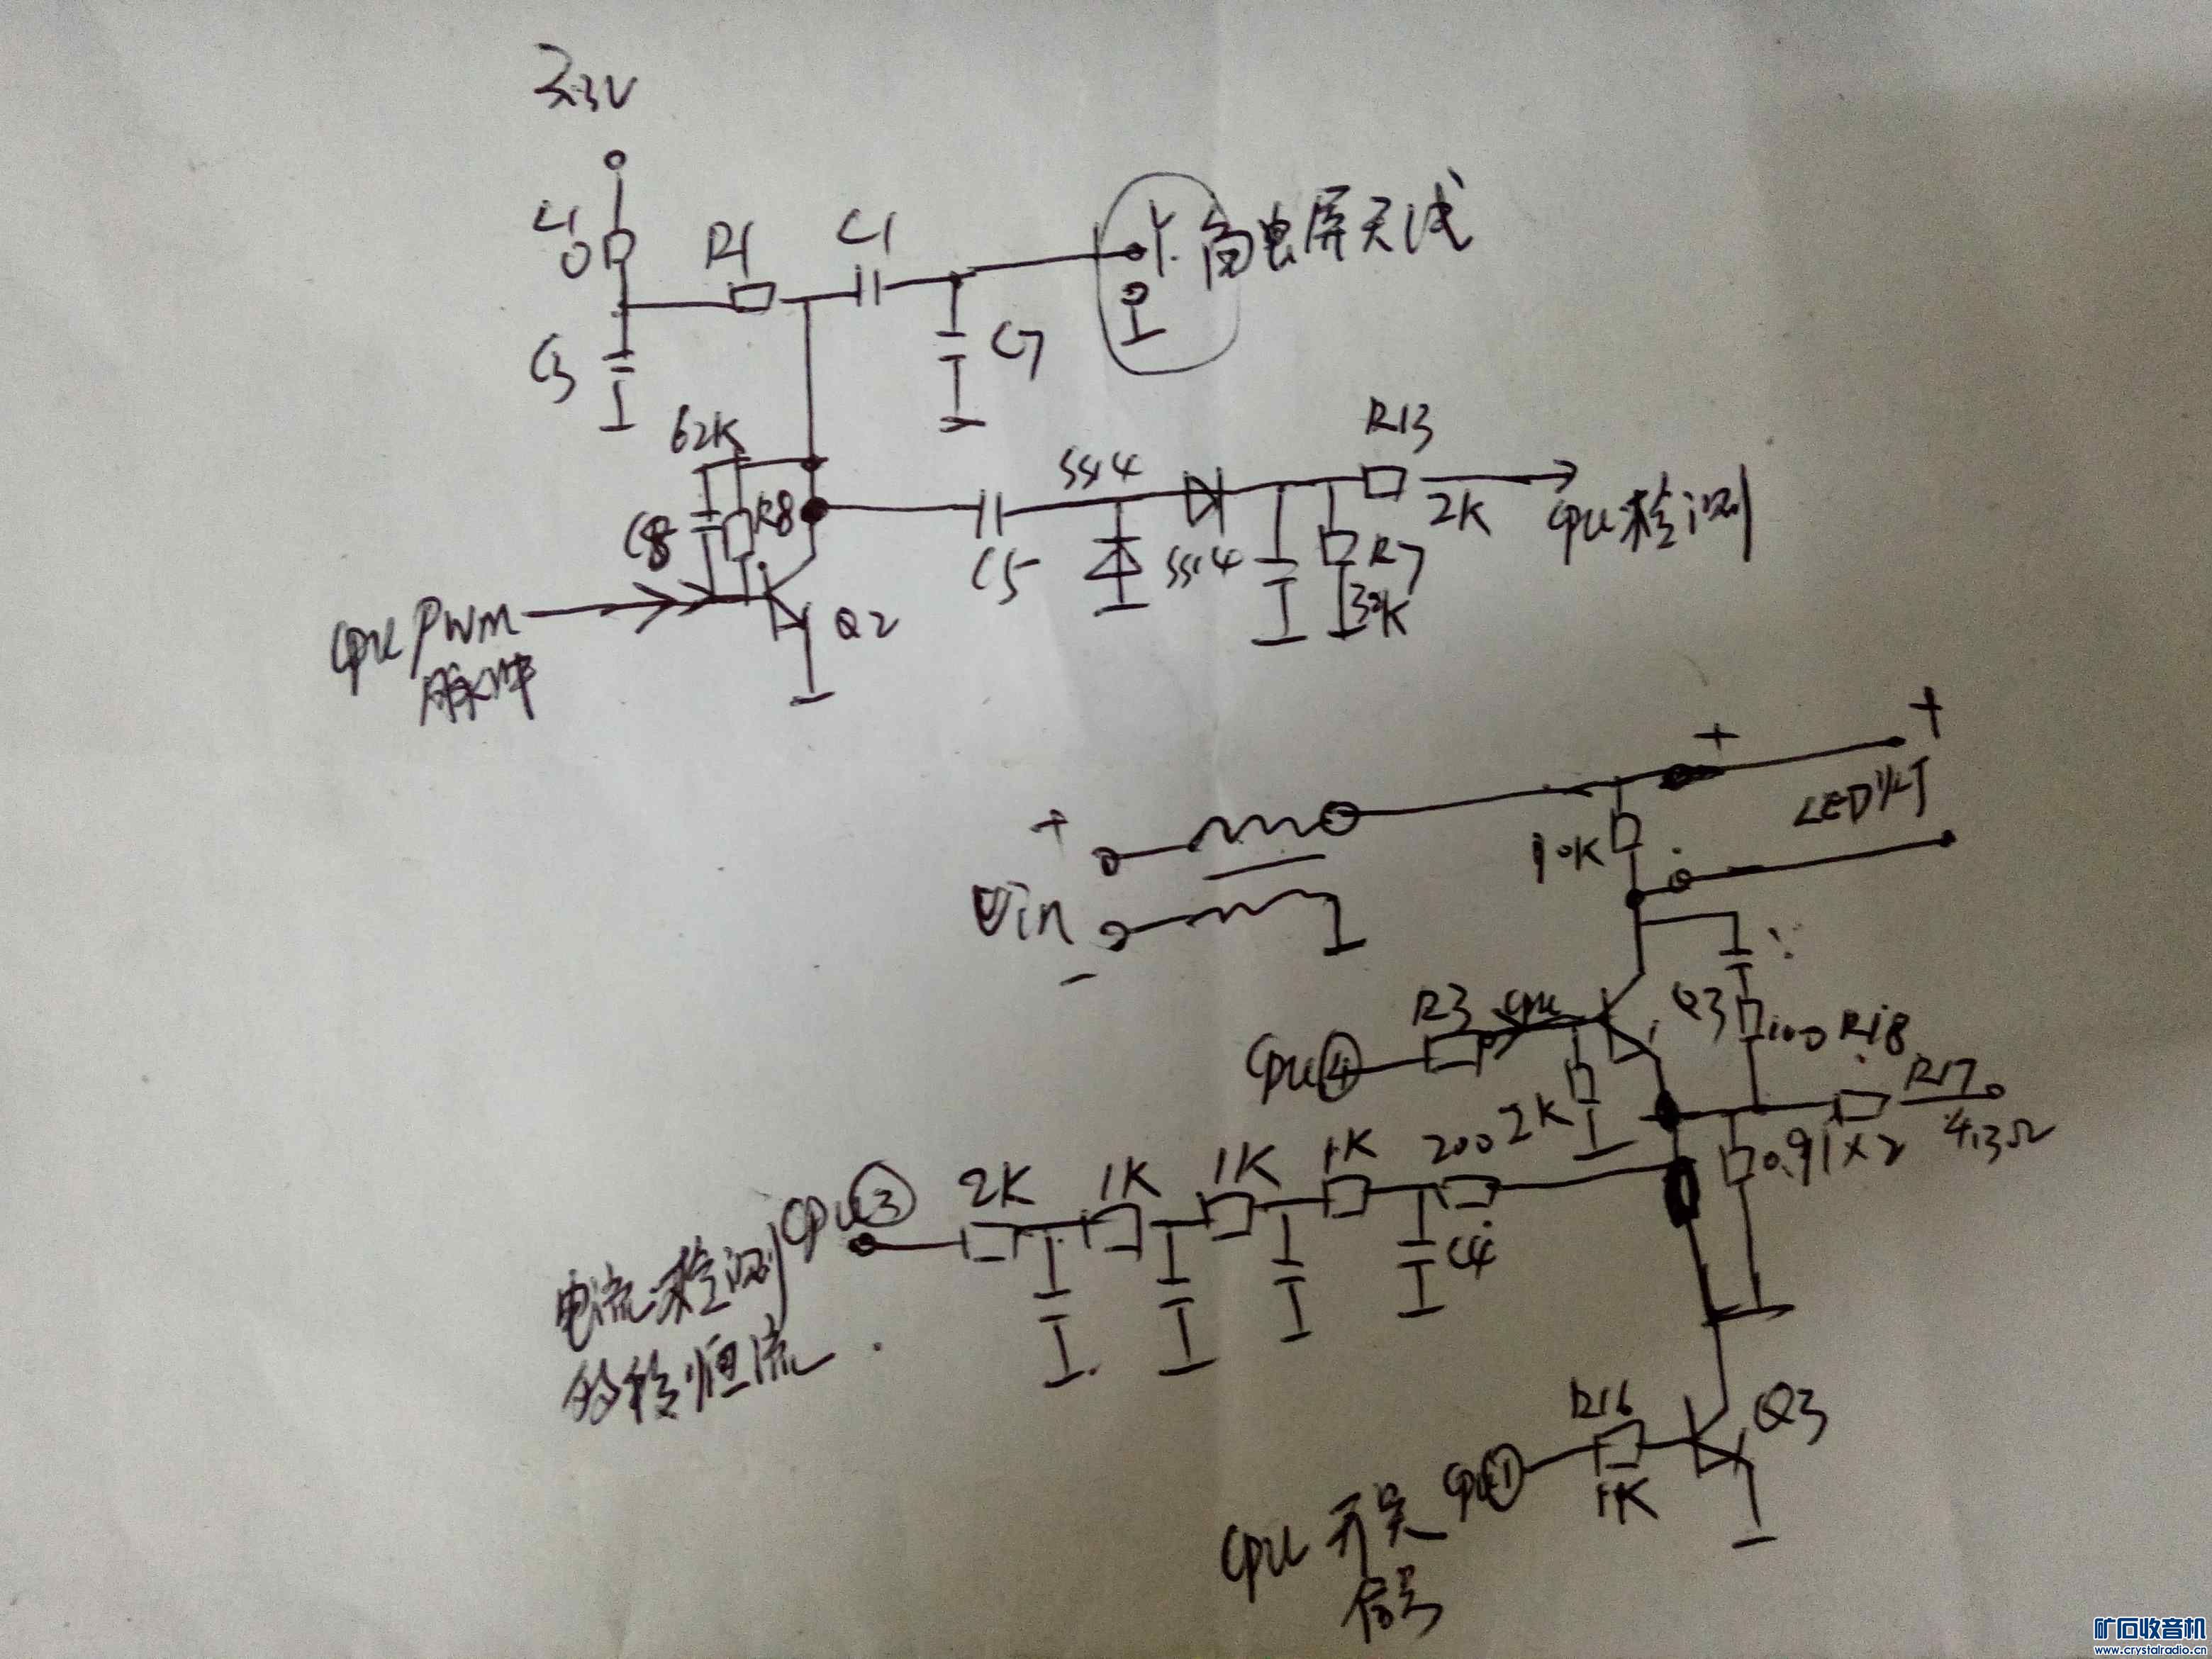 3.3V
L1
0
R1
C1
高虫屏天线
C3
C7
62K
C8
R8
SS14
R13
2K
CPU检测
C5
SS14
R7
30K
CPU PWM
脉冲
Q2
+
+
LED灯
+
10K
Vin
-
R3
CPU
Q3
100 R18
CPU④
R17
4.3Ω
2K
0.91×2
CPU③
2K
1K
1K
1K
200
C4
电流检测
恒流
R16
Q3
CPU①
1K
CPU 开关
信号
矿石收音机
www.crystalradio.cn